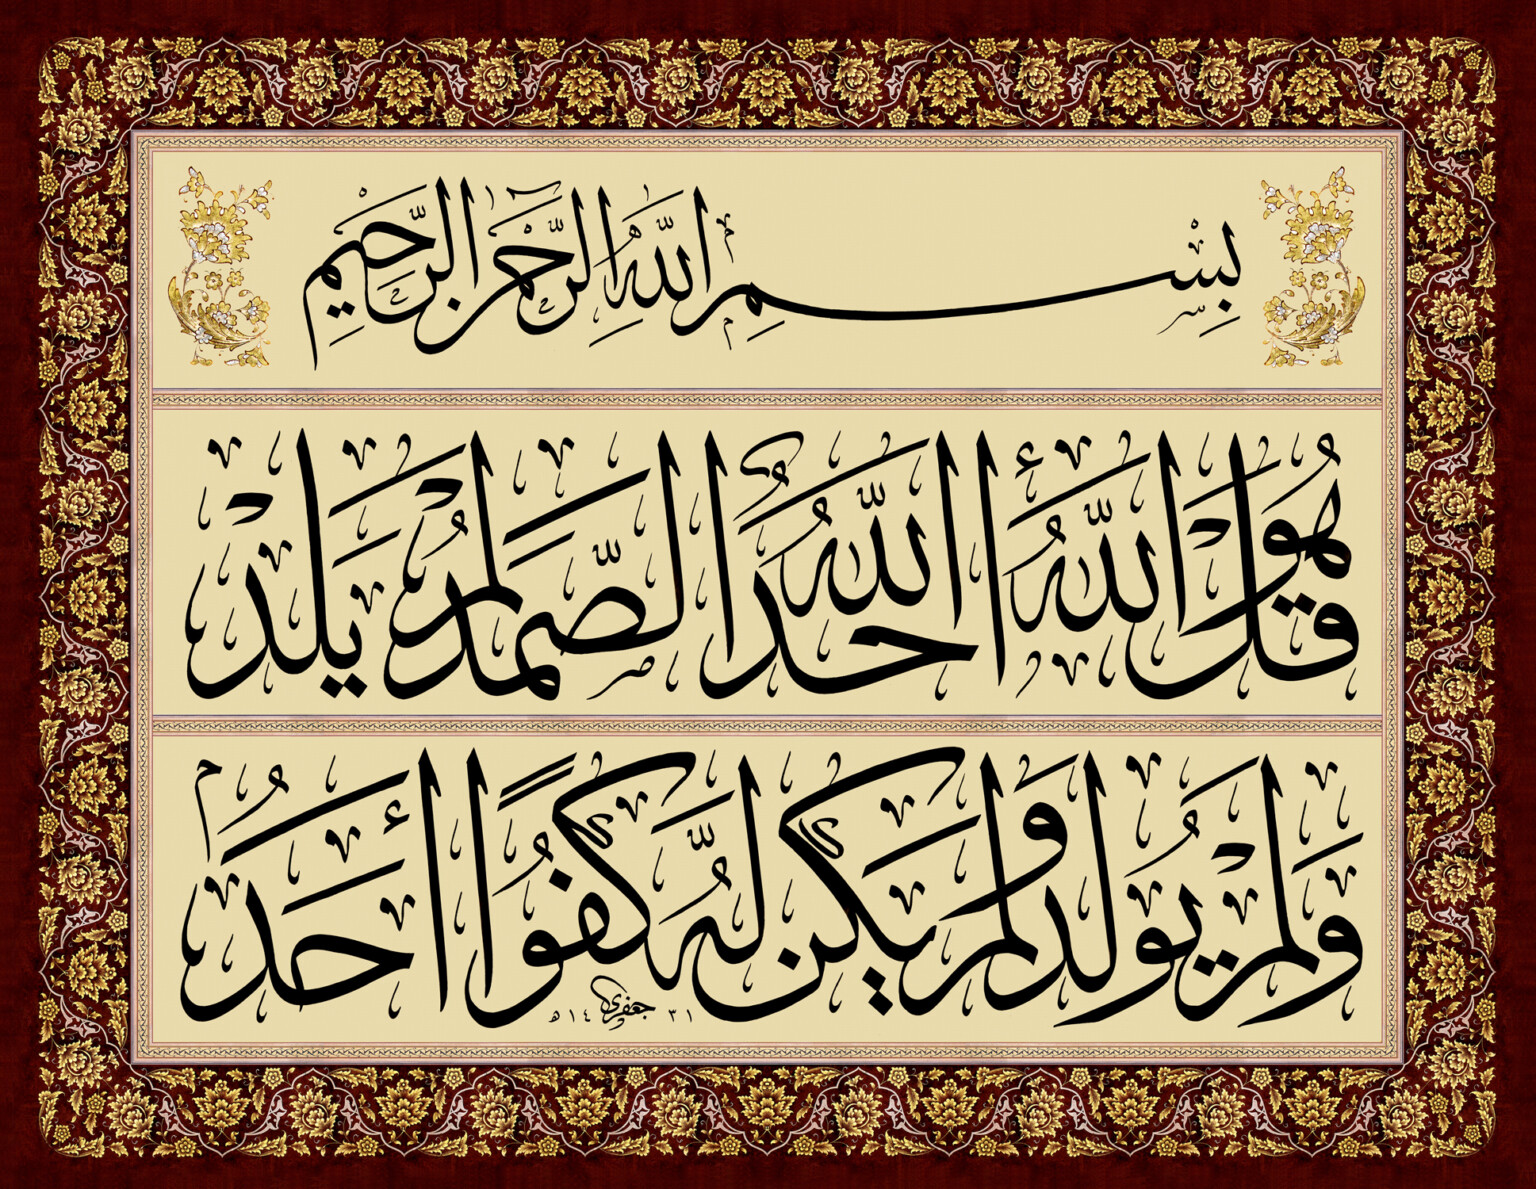 بِسْمِ اللّٰهِ الرَّحْمٰنِ الرَّحِيمِ
قُلْ هُوَ اللّٰهُ أَحَدٌ اللّٰهُ الصَّمَدُ لَمْ يَلِدْ
وَلَمْ يُولَدْ وَلَمْ يَكُنْ لَهُ كُفُوًا أَحَدٌ
جعفری ١٤٣١ ھ